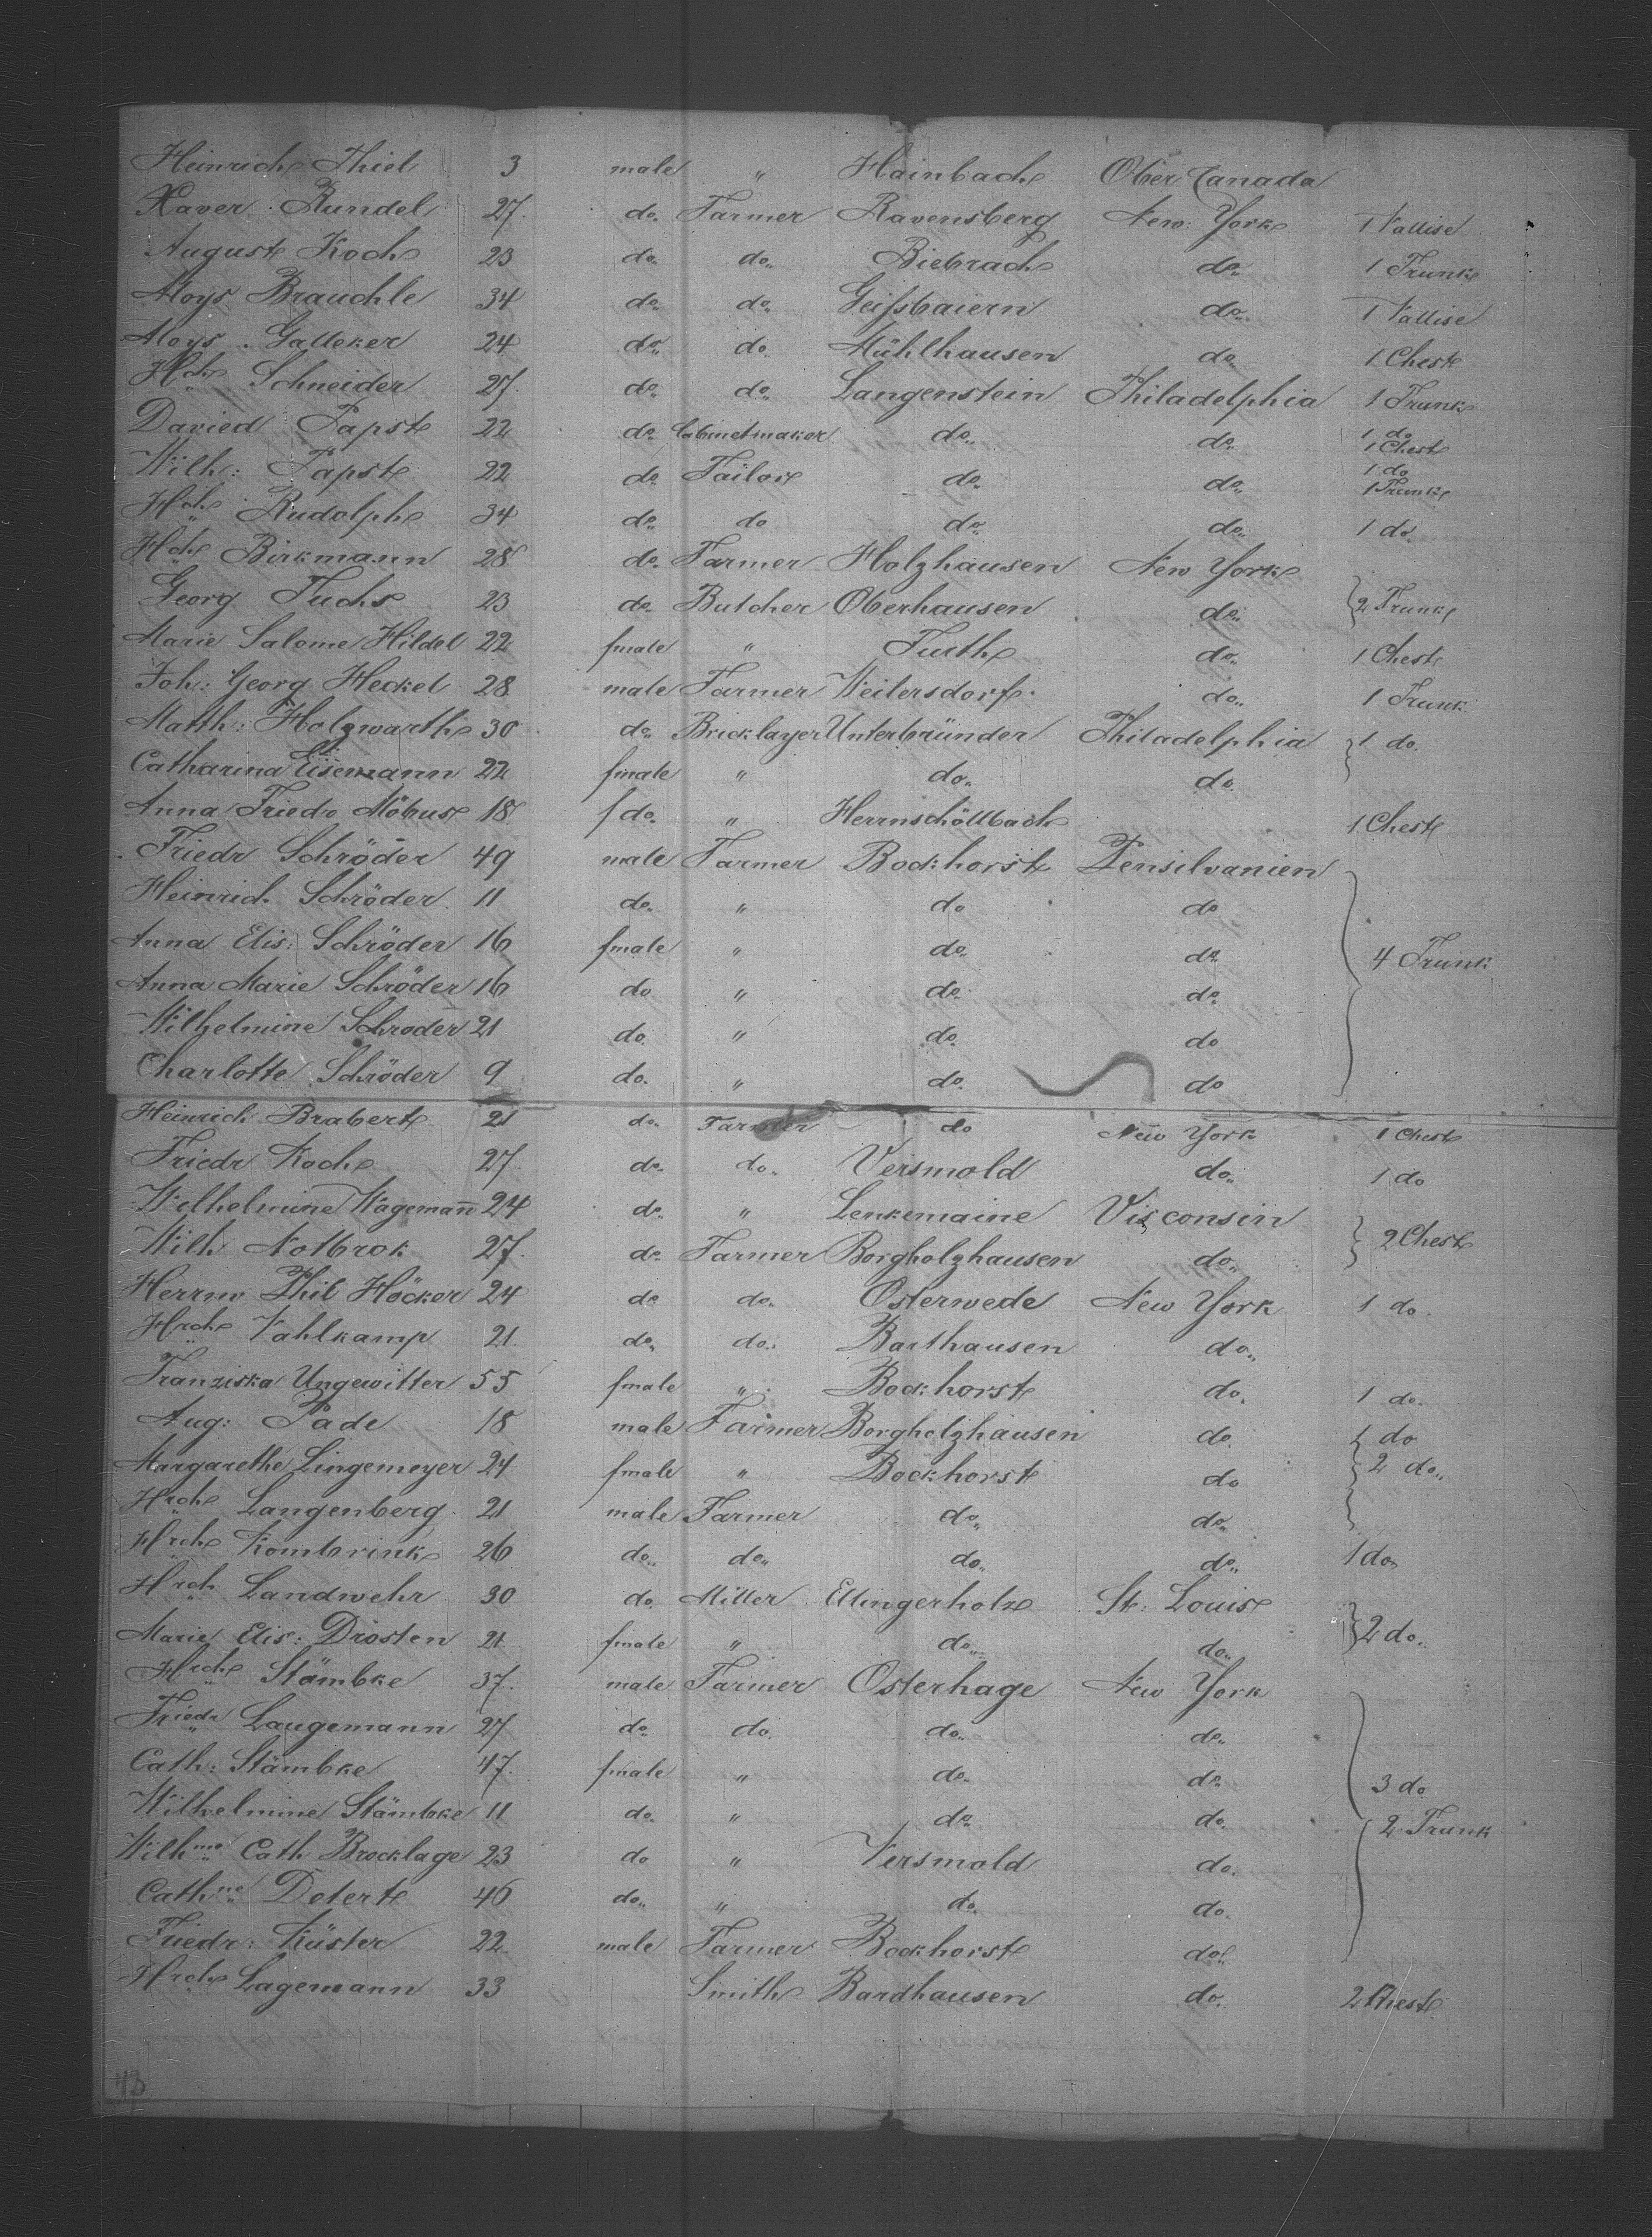 Heinrich Thiel 3 male " Hainbach Ober Canada
Xaver Rundel 27. do. Farmer Ravensberg New York 1 Vallise
August Koch 23 do. do. Biebrach do. 1 Trunk
Aloys Brauchle 34 do. do. Geifsbaiern do. 1 Vallise
Aloys Galleker 24 do. do. Mühlhausen do. 1 Chest
Hch Schneider 27. do. do. Langenstein Philadelphia 1 Trunk
Davied Papst 22 do. Cabinetmaker do. do. 1 do 1 Chest
Wilh: Papst 22 do. Tailor do. do. 1 do 1 Trunk
Hch Rudolph 34 do. do do. do. 1 do.
Hch Birkmann 28 do. Farmer Holzhausen New York
Georg Fuchs 23 do. Butcher Oberhausen do. 2 Trunk
Marie Salome Hildel 22 fmale " Furth do. 1 Chest
Joh: Georg Heckel 28 male Farmer Weilersdorf do. 1 Trunk
Matth: Holzwarth 30 do. Bricklayer Unterbründer Philadelphia 1 do.
Catharina Eisemann 22 fmale " do. do.
Anna Friedr Möbus 18 f do. " Herrnschöllbach 1 Chest
Friedr Schröder 49 male Farmer Bockhorst Pensilvanien
Heinrich Schröder 11 do. " do do
Anna Elis: Schröder 16 fmale " do. do. 4 Trunk
Anna Marie Schröder 16 do " do. do.
Wilhelmine Schroder 21 do. " do. do
Charlotte Schröder 9 do. " do. do
Heinrich Brabert 21 do. Farmer do New York 1 Chest
Friedr Koch 27. do. do. Versmold do. 1 do
Wilhelmine Wagemann 24 do. " Lenkemaine Visconsin
Wilh Notbrok 27. do. Farmer Borgholzhausen do. 2 Chest
Herrm Phil Höcker 24 do do. Osterwede New York 1 do.
Hrch Vahlkamp 21. do. do. Barthausen do.
Franziska Ungewitter 55 fmale " Bockhorst do. 1 do.
Aug: Pade 18 male Farmer Borgholzhausen do. 1 do
Margarethe Lingemeyer 24 fmale " Bockhorst do 2 do.
Hrch Langenberg 21 male Farmer do. do.
Hrch Kombrink 26 do. do. do. do. 1 do
Hrch Landwehr 30 do. Miller Ellingerholz St. Louis
Marie Elis: Drosten 21 fmale " do. do. 2 do.
Hrch Stämbke 37. male Farmer Osterhage New York
Friedr Laugemann 27 do. do. do. do.
Cath: Stämbke 47. fmale " do. do. 3 do
Wilhelmine Stämbke 11 do. " do. do. 2 Trunk
Wilhme Cath Brocklage 23 do " Versmold do.
Cathne Detert 46 do. " do. do.
Friedr: Küster 22 male Farmer Bockhorst do.
Hrch Lagemann 33 Smith Bardhausen do. 2 Chest